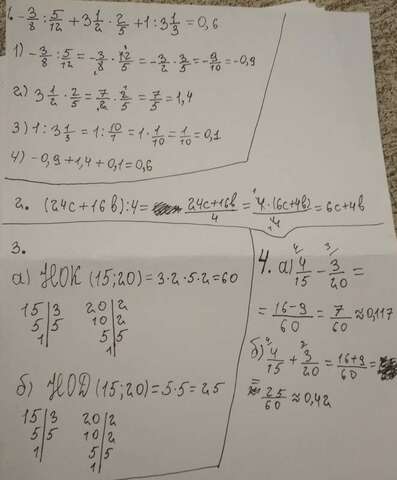 1. -3/8 : 5/12 + 3 1/2 · 2/5 + 1 : 3 1/3 = 0,6
1) -3/8 : 5/12 = -3/8 · 12/5 = -3/2 · 3/5 = -9/10 = -0,9
2) 3 1/2 · 2/5 = 7/2 · 2/5 = 7/5 = 1,4
3) 1 : 3 1/3 = 1 : 10/1 = 1 · 1/10 = 1/10 = 0,1
4) -0,9 + 1,4 + 0,1 = 0,6
2. (24c + 16b) : 4 = (24c + 16b)/4 = 4 · (6c + 4b)/4 = 6c + 4b
3.
а) НОК (15; 20) = 3 · 2 · 5 · 2 = 60
15 | 3 20 | 2
5 | 5 10 | 2
1 | 5 | 5
1 |
б) НОД (15; 20) = 5 · 5 = 25
15 | 3 20 | 2
5 | 5 10 | 2
1 | 5 | 5
1 |
4. а) 4/15 - 3/20 =
= (16 - 9)/60 = 7/60 ≈ 0,117
б) 4/15 + 3/20 = (16 + 9)/60 =
= 25/60 ≈ 0,42